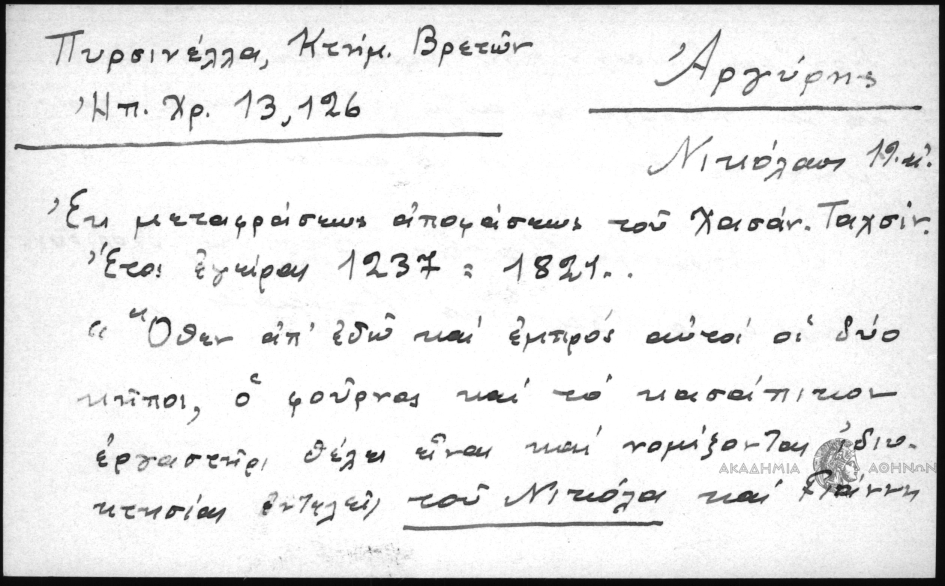 Πυρσινέλλα, Κτημ. Βρετῶν
Ἠπ. Χρ. 13, 126
Ἀργύρης
Νικόλαος 19. κ.
Ἐκ μεταφράσεως ἀποφάσεως τοῦ Χασάν. Ταχσίν.
Ἔτος ἐγείρας 1237 = 1821..
« "Ὅθεν ἀπ' ἐδῶ καί ἐμπρός αὐτοί οἱ δύο
κῆποι, ὁ φοῦρνος καί τό κασάπικον
ἐργαστῆρι θέλει εἶναι καί νομίζονται ἰδιο-
κτησίαι ἐντελεῖς τοῦ Νικόλα καί Γιάννη
ΑΚΑΔΗΜΙΑ ΑΘΗΝΩΝ